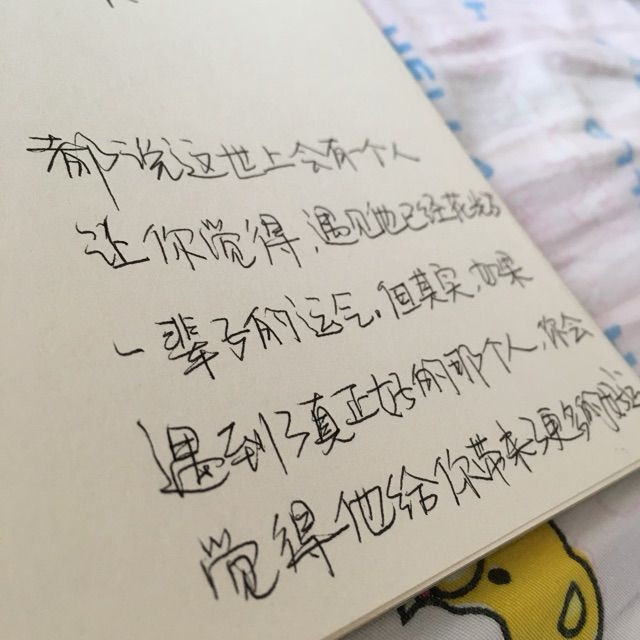 都说这世上会有一个人
让你觉得,遇见他已经花光了
一辈子的运气,但其实,如果
遇到了真正好的那个人,你会
觉得他给你带来了更多的